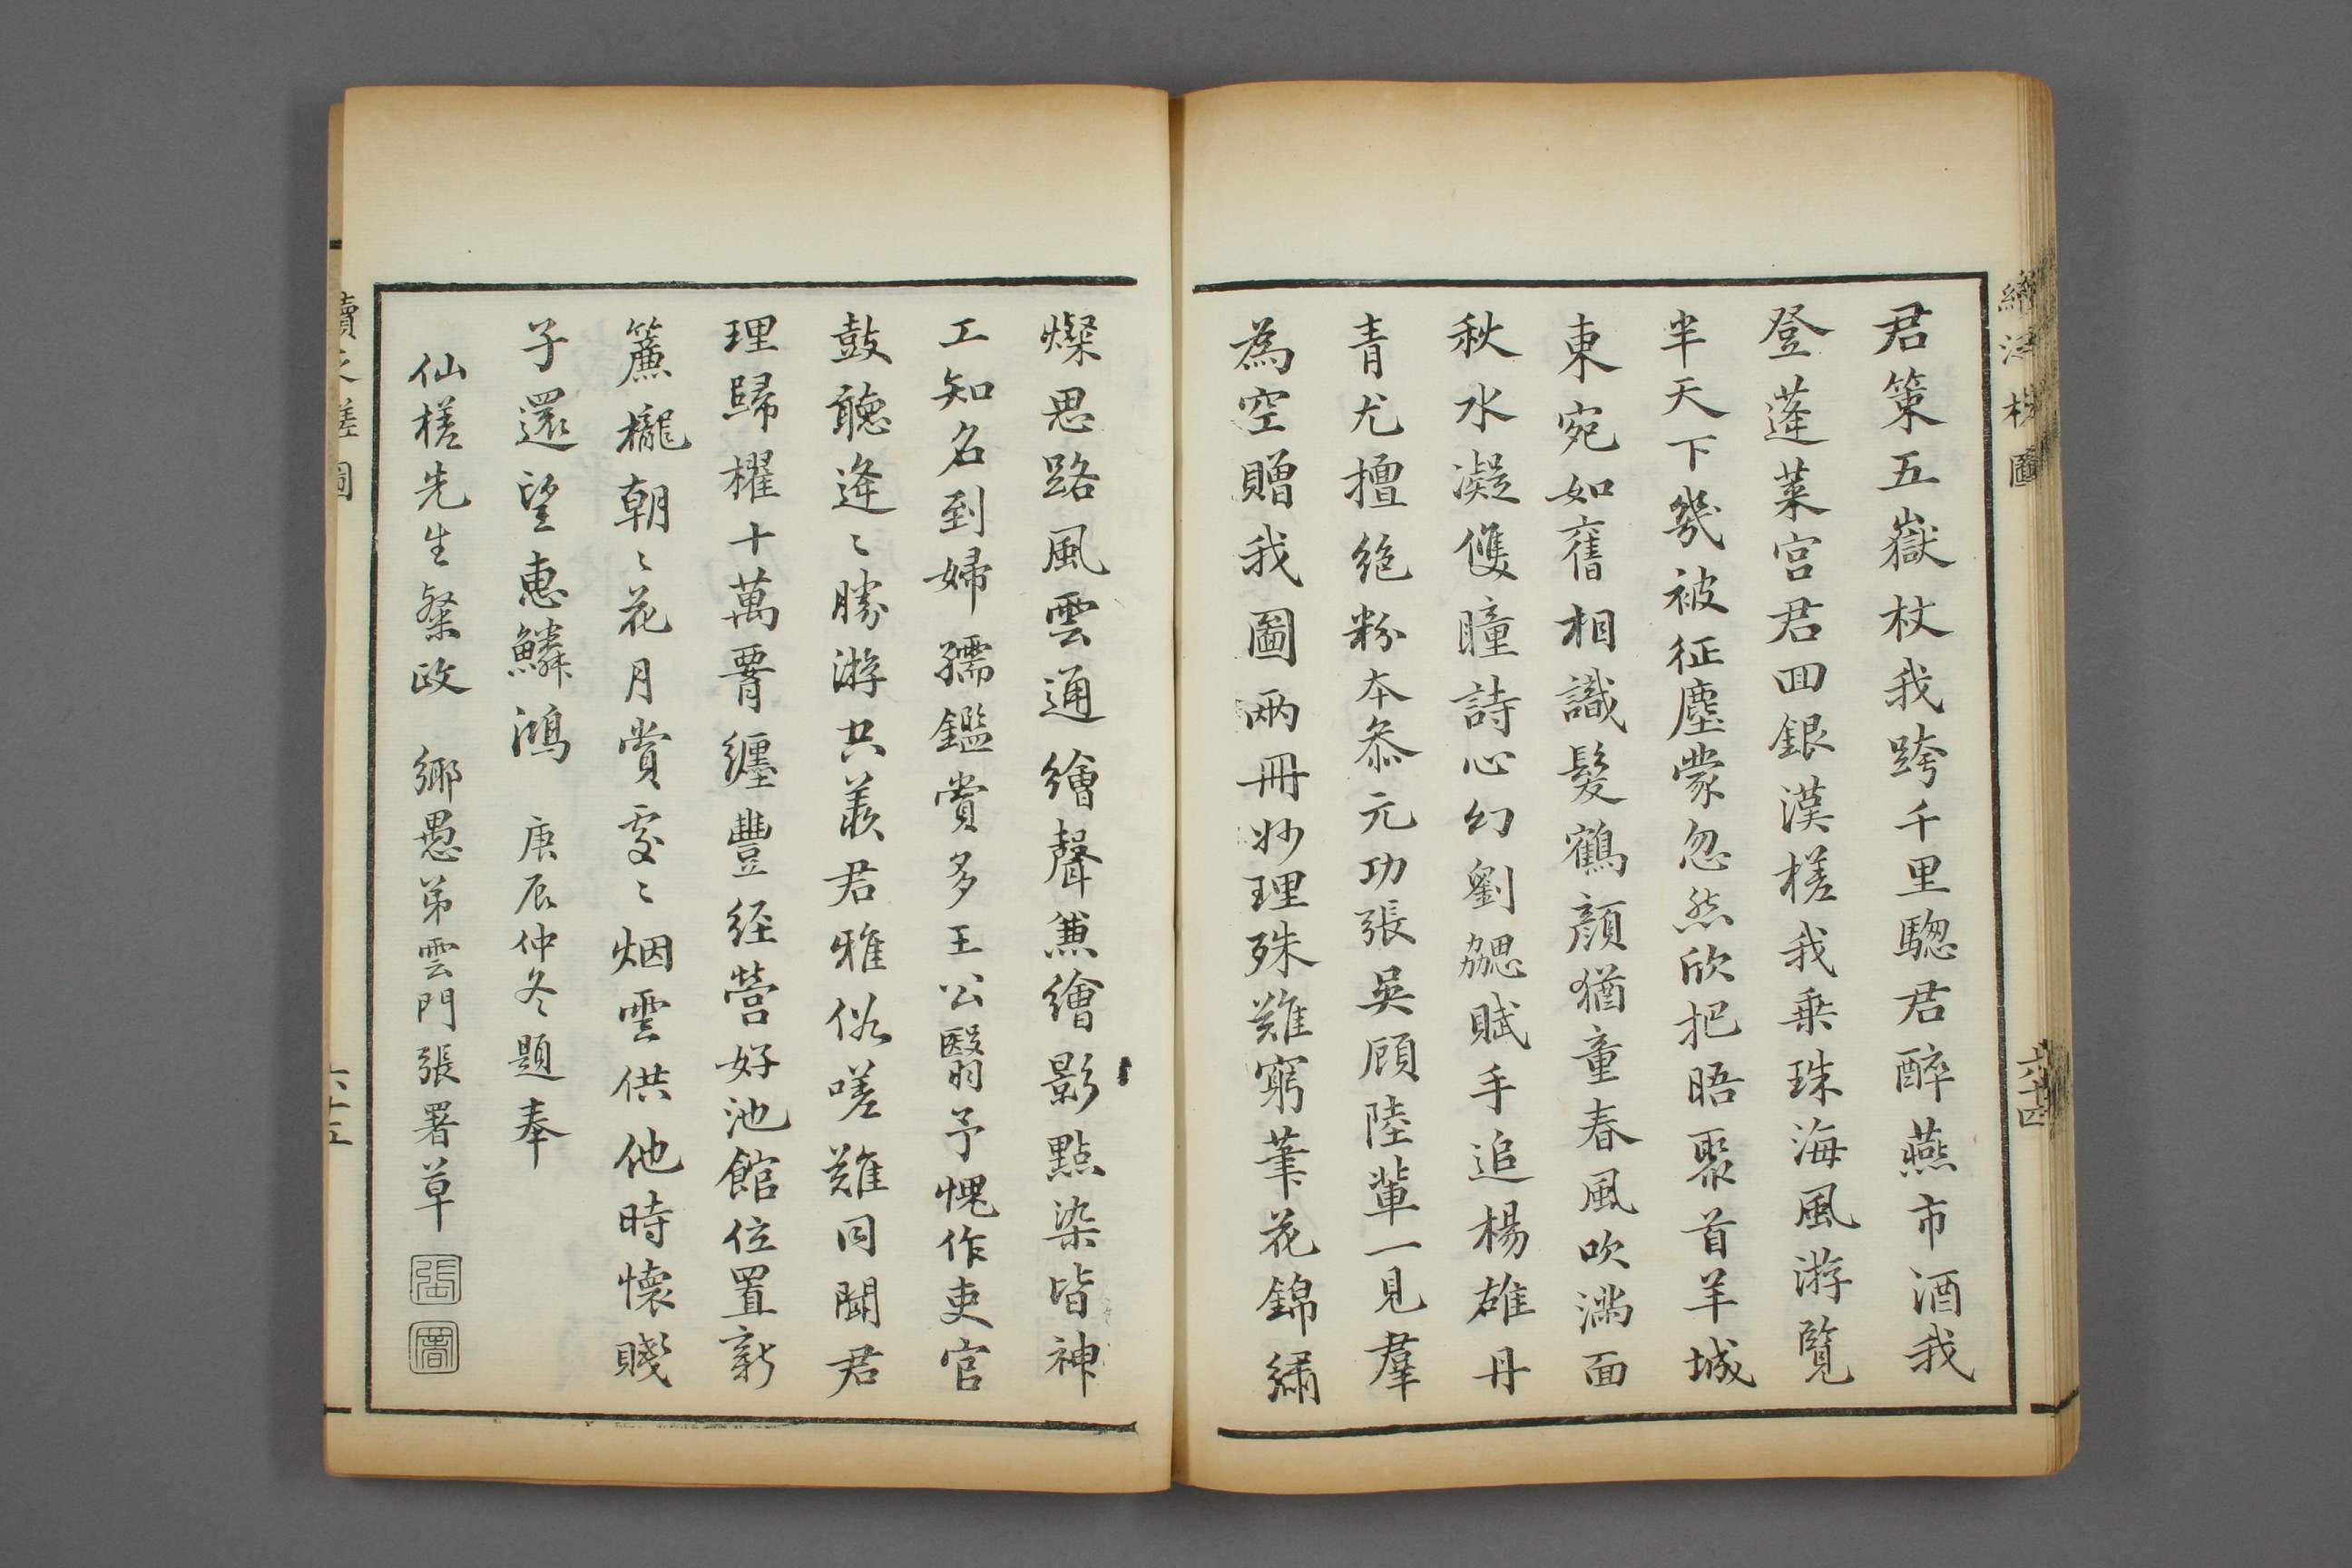 君策五嶽杖我跨千里驄君醉燕市酒我
登蓬萊宮君回銀漢槎我乗珠海風游覽
半天下幾被征塵蒙忽然欣把晤聚首羊城
東宛如舊相識髮鶴顔猶童春風吹滿面
秋水凝雙瞳詩心幻劉勰賦手追楊雄丹
青尤擅絶粉本叅元功張吳顧陸輩一見羣
為空贈我圖兩冊妙理殊難窮筆花錦繡
燦思路風雲通繪聲兼繪影點染皆神
工知名到婦孺鑑賞多王公翳予愧作吏官
鼓聽逄〻勝游共羨君雅俗嗟難同聞君
理歸櫂十萬腰纏豐經營好池館位置新
簾櫳朝〻花月賞處〻烟雲供他時懷賤
子還望惠鱗鴻 庚辰仲冬題奉
仙槎先生粲政 鄉愚弟雲門張署草
續泛槎圖
六十四
續泛槎圖
六十五